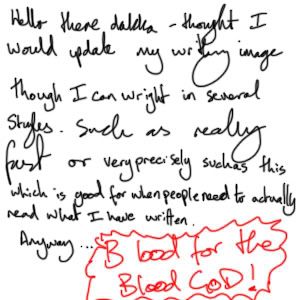 Hello there dakka - thought I
would update my writing image
Though I can wright in several
Styles. Such as really
fast or very precisely such as this
which is good for when people need to actually
read what I have written.
Anyway...
Blood for the
Blood GOD!